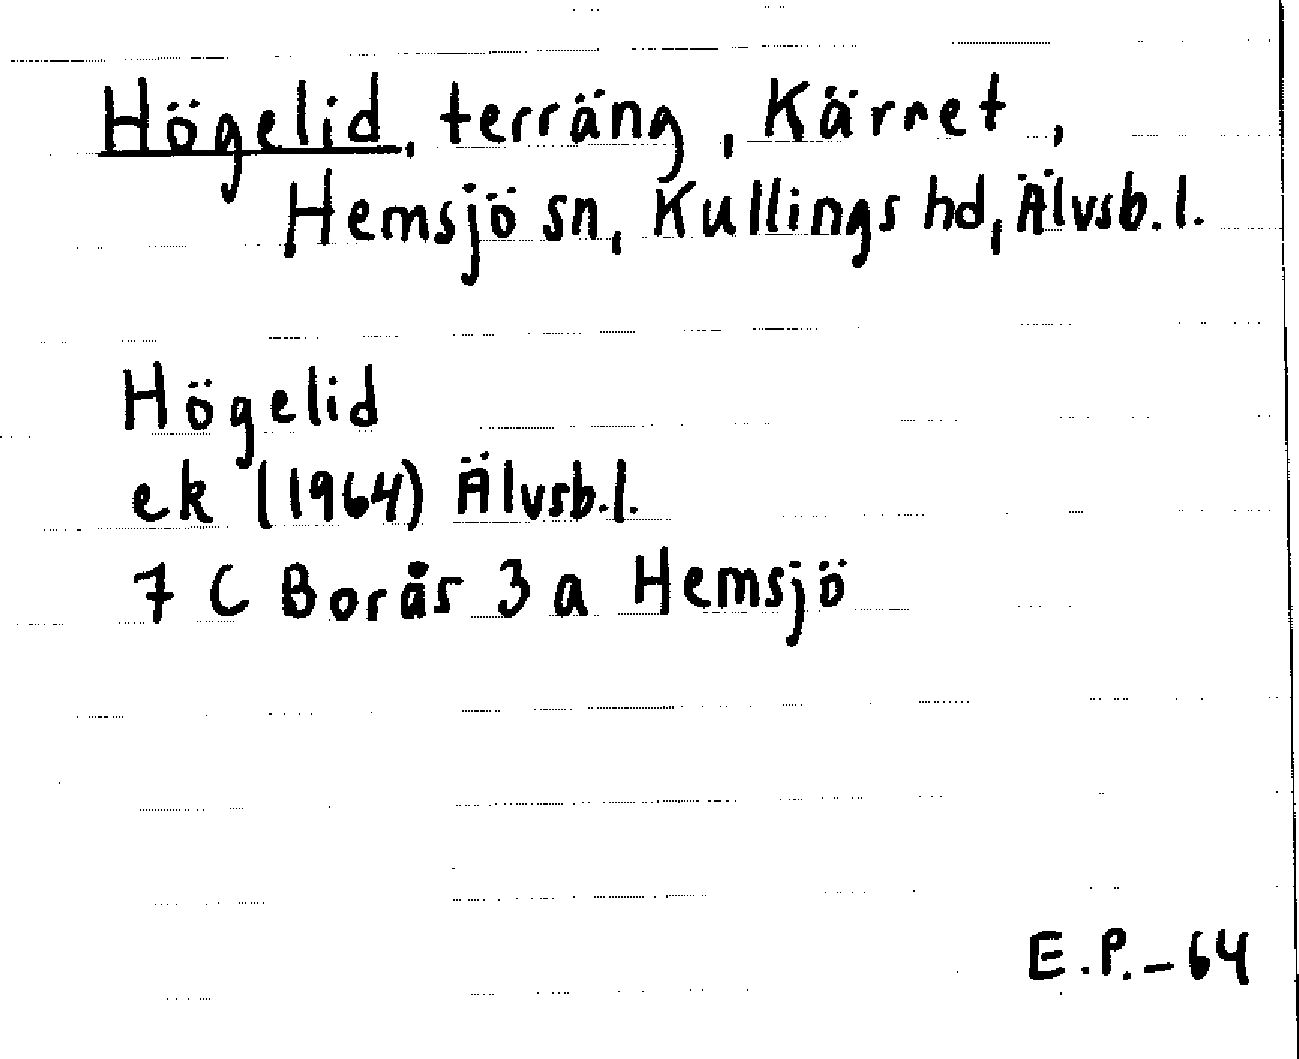 Högelid, terräng, Kärret,
Hemsjö sn, Kullings hd, Älvsb.l.
Högelid
ek (1964) Älvsb.l.
7 C Borås 3 a Hemsjö
E.P.-64